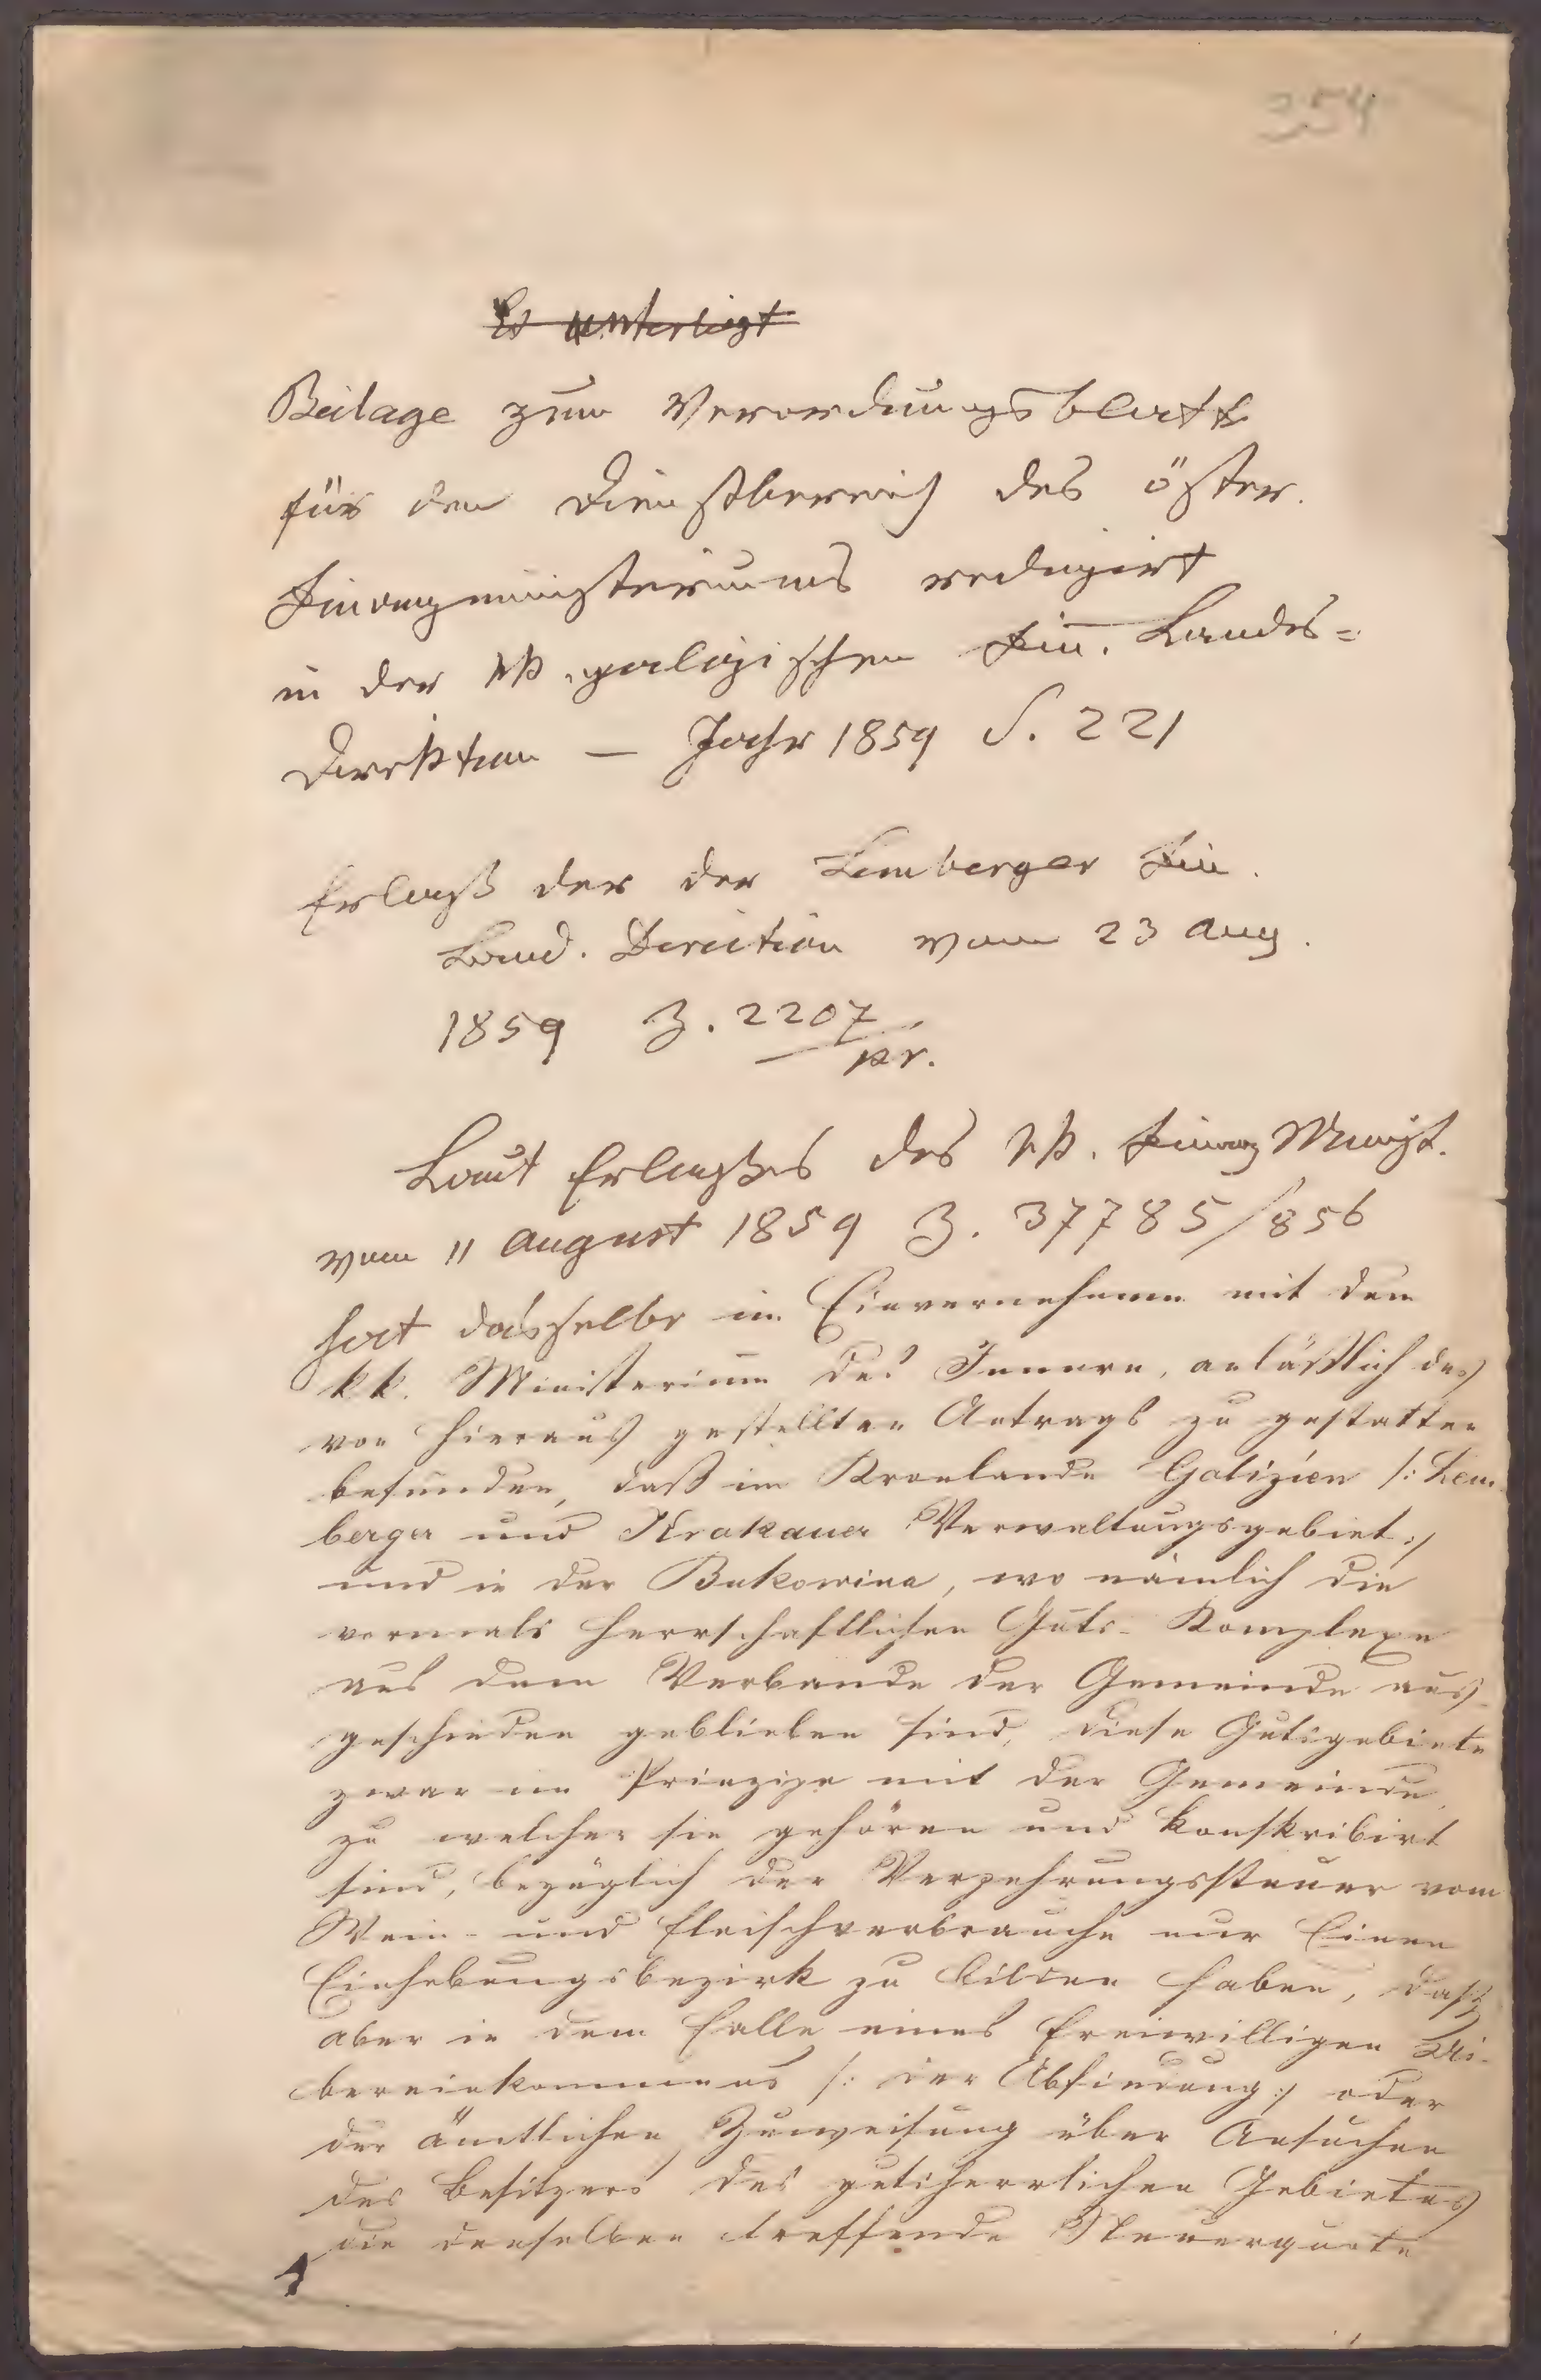 354
Es unterliegt
Beilage zum Verordnungsblatte
für den Dienstbereich des öster.
Finanzministeriums redigirt
in der kk. galizischen Fin. Landes=
Direktion — Jahr 1859 S. 221
Erlaß der der Lemberger Fin.
Land. Direction vom 23 Aug.
1859 Z. 2207
pr.
Laut Erlaßes des kk. Finanz Minist.
vom 11 August 1859 Z. 37785/856
hat dasselbe im Einvernehmen mit dem
kk. Ministerium des Innern, anläßlich des
von hieraus gestellten Antrags zu gestatten
befunden, daß im Kronlande Galizien /: Lem-
berger und Krakauer Verwaltungsgebiet :/
und in der Bukowina, wo nämlich die
vormals herrschaftlichen Guts- Komplexe
aus dem Verbande der Gemeinde aus-
geschieden geblieben sind, diese Gutsgebiete
zwar im Prinzipe mit der Gemeinde,
zu welcher sie gehören und konskribirt
sind, bezüglich der Verzehrungssteuer vom
Wein- und Fleischverbrauche nur Einen
Einhebungsbezirk zu bilden haben, daß
aber in dem Falle eines freiwilligen Ui-
bereinkommens /: der Abfindung :/ oder
der ämtlichen Zuweisung über Ansuchen
des Besitzers des gutsherrlichen Gebietes
die denselben treffende Steuerquote
1